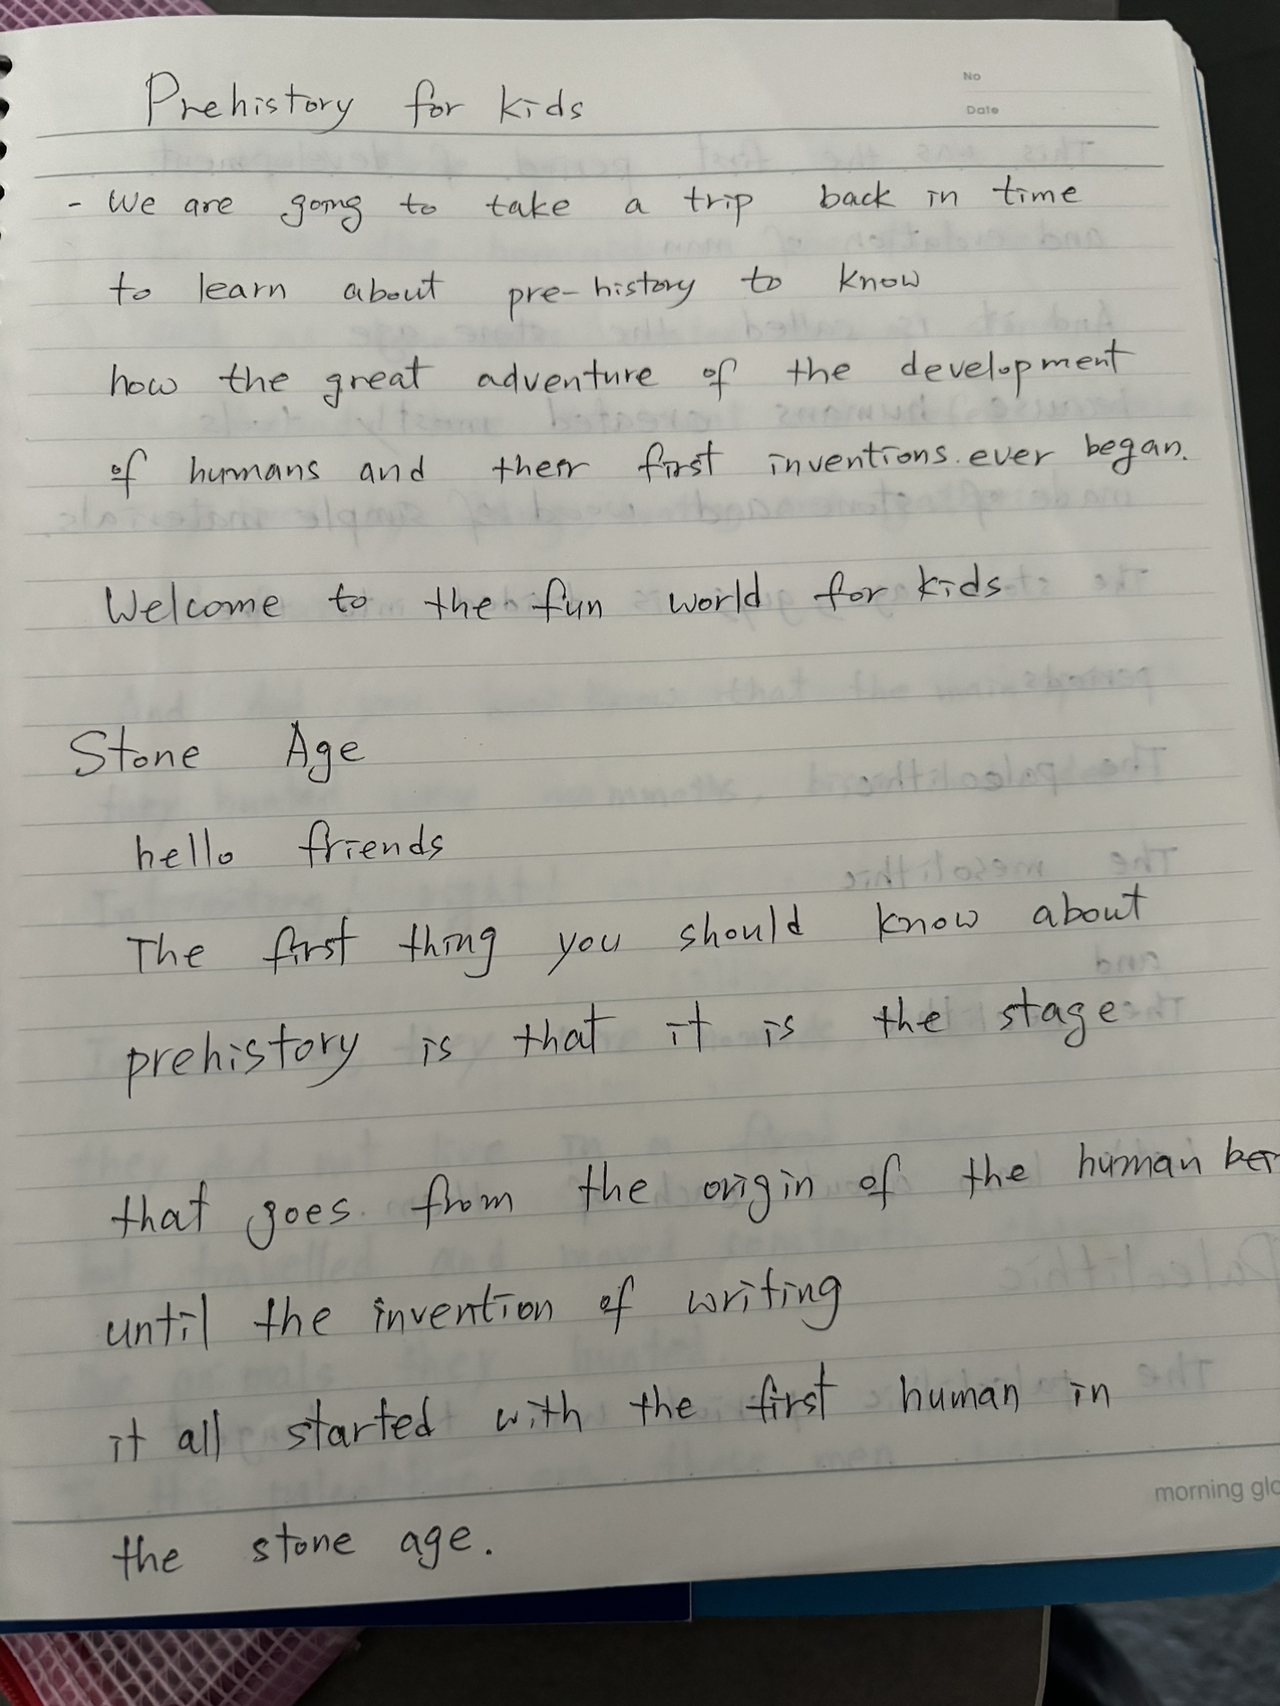 No
Prehistory for kids
Date
- We are going to take a trip back in time
to learn about pre-history to know
how the great adventure of the development
of humans and their first inventions ever began.
Welcome to the fun world for kids
Stone Age
hello friends
The first thing you should know about
prehistory is that it is the stage
that goes from the origin of the human
until the invention of writing
it all started with the first human in
morning
the stone age.